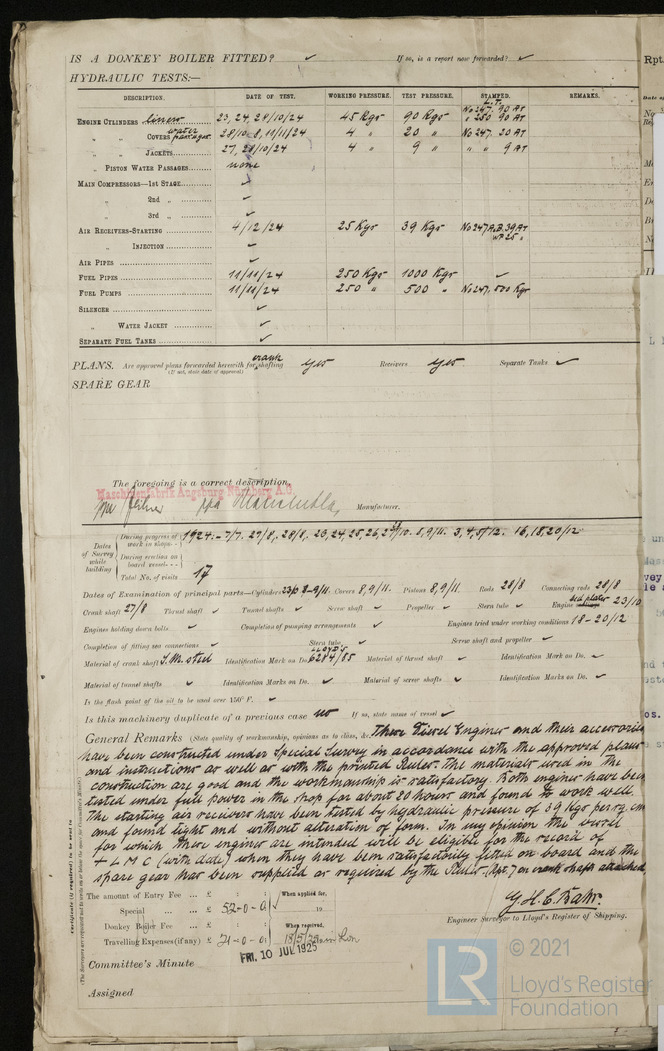 IS A DONKEY BOILER FITTED? ✓ If so, is a report now forwarded? ✓
HYDRAULIC TESTS:—
DESCRIPTION. DATE OF TEST. WORKING PRESSURE. TEST PRESSURE. STAMPED. REMARKS.
ENGINE CYLINDERS liners 23, 24, 28/10/24 45 Kgs 90 Kgs L.T. No 247, 90 AT " 250 90 AT
" " COVERS water passages 28/10 - 8, 11/11/24 4 " 20 " No 247. 20 AT
" " JACKETS 27, 28/10/24 4 " 9 " " " 9 AT
" PISTON WATER PASSAGES none
MAIN COMPRESSORS—1st STAGE ✓
" 2nd " ✓
" 3rd " ✓
AIR RECEIVERS-STARTING 4/12/24 25 Kgs 39 Kgs No 247 A.B. 39 AT WP 25 "
" INJECTION ✓
AIR PIPES ✓
FUEL PIPES 11/11/24 250 Kgs 1000 Kgs ✓
FUEL PUMPS 11/11/24 250 " 500 " No 247. 500 Kgs
SILENCER ✓
" WATER JACKET ✓
SEPARATE FUEL TANKS ✓
PLANS. Are approved plans forwarded herewith for crank shafting yes Receivers yes Separate Tanks ✓
(If not, state date of approval)
SPARE GEAR
The foregoing is a correct description,
Maschinenfabrik Augsburg Nürnberg A.G.
ppa
Manufacturer.
Dates of Survey while building
During progress of work in shops-- 1924:- 7/7. 27/8, 28/8, 23, 24, 25, 26, 27/10. 8, 9/11. 3, 4, 5/12. 16, 18, 20/12
During erection on board vessel---
Total No. of visits 17
Dates of Examination of principal parts—Cylinders 23/10 8-9/11. Covers 8, 9/11. Pistons 8, 9/11. Rods 28/8 Connecting rods 28/8
Crank shaft 27/8 Thrust shaft ✓ Tunnel shafts ✓ Screw shaft ✓ Propeller ✓ Stern tube ✓ Engine bed plates - 23/10
Engines holding down bolts ✓ Completion of pumping arrangements ✓ Engines tried under working conditions 18-20/12
Completion of fitting sea connections ✓ Stern tube ✓ Screw shaft and propeller ✓
Material of crank shaft S.M. steel Identification Mark on Do. LLOYD'S 6284/85 Material of thrust shaft ✓ Identification Mark on Do. ✓
Material of tunnel shafts ✓ Identification Marks on Do. ✓ Material of screw shafts ✓ Identification Marks on Do. ✓
Is the flash point of the oil to be used over 150° F. ✓
Is this machinery duplicate of a previous case no If so, state name of vessel ✓
General Remarks (State quality of workmanship, opinions as to class, &c. These Diesel Engines and their accessories
have been constructed under Special Survey in accordance with the approved plans
and instructions as well as with the printed Rules. The materials used in the
construction are good and the workmanship is satisfactory. Both engines have been
tested under full power in the shop for about 20 hours and found to work well.
The starting air receivers have been tested by hydraulic pressure of 39 Kgs per sq. cm
and found tight and without alteration of form. In my opinion the vessel
for which these engines are intended will be eligible for the record of
+ L M C (with date) when they have been satisfactorily fitted on board and the
spare gear has been supplied as required by the Rules. Rpt. 7 on crank shafts attached
The amount of Entry Fee ... £ : : When applied for,
Special ... ... £ 52-0-0 19
Donkey Boiler Fee ... £ : : When received,
Travelling Expenses (if any) £ 21-0-0 18/5/25
FRI. 10 JUL 1925
Engineer Surveyor to Lloyd's Register of Shipping.
Committee's Minute
Assigned
Certificate (if required) to be sent to
(The Surveyors are requested not to write on or below the space for Committee's Minute.)
Rpt.
© 2021
LR
Lloyd's Register
Foundation